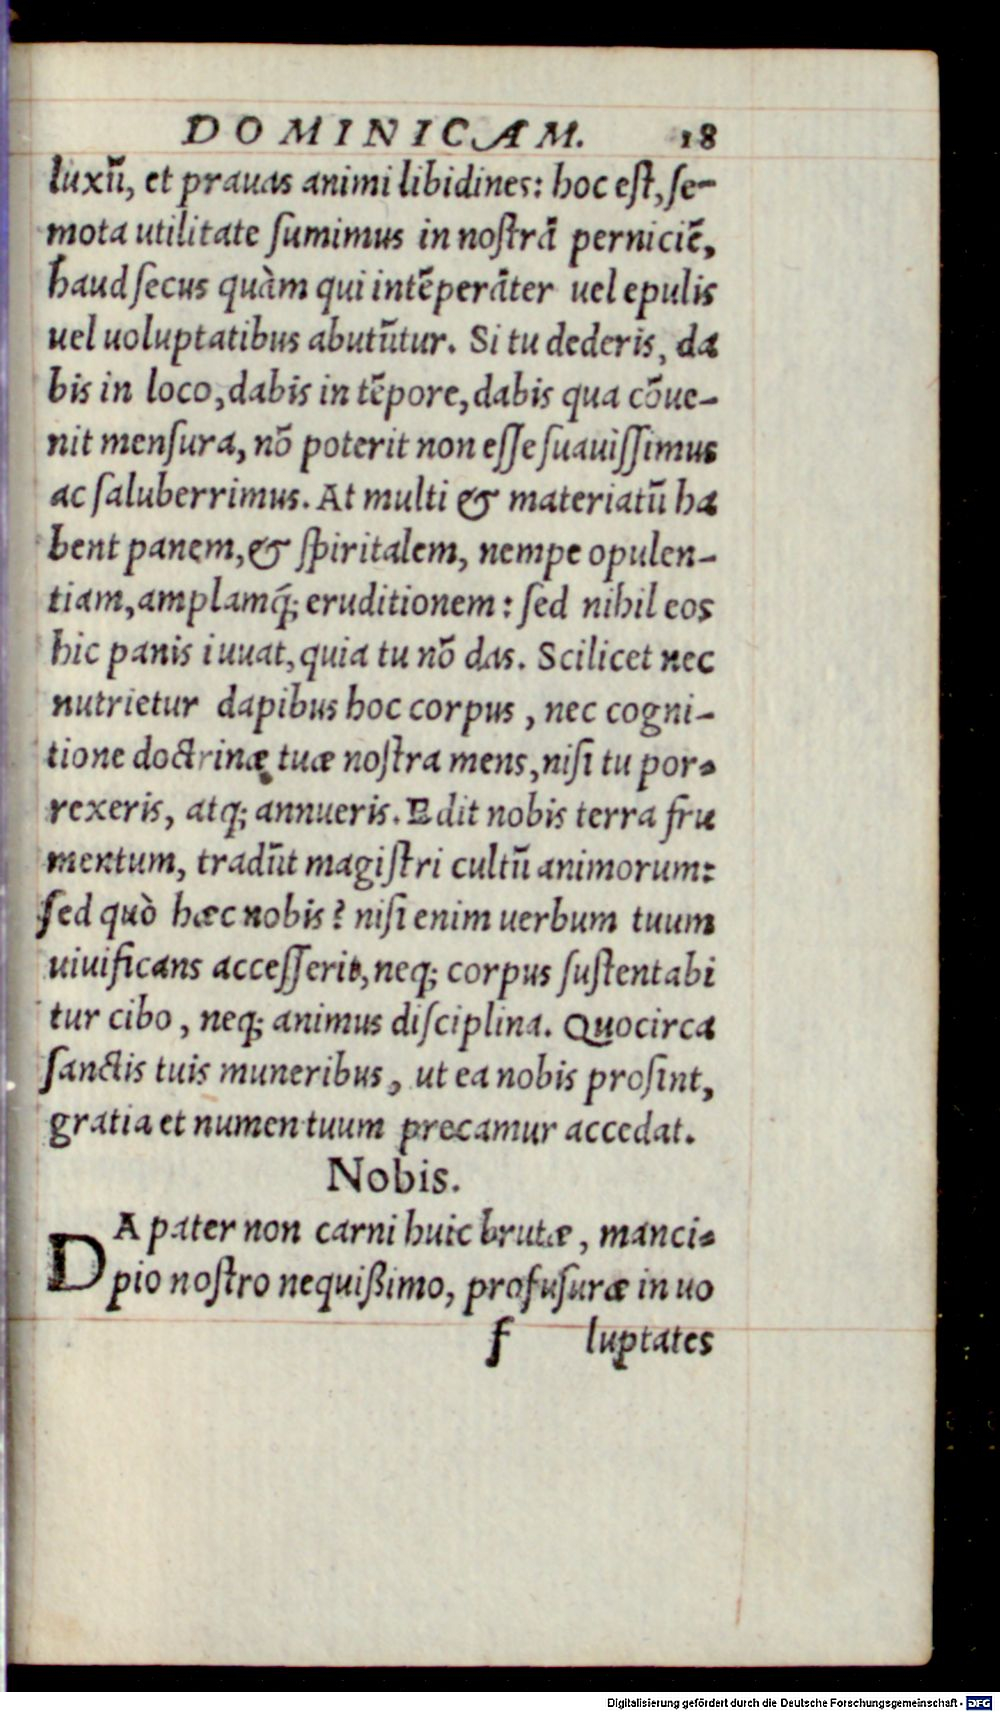 DOMINICAM. 18
luxū, et prauas animi libidines: hoc eſt, ſe-
mota utilitate ſumimus in noſtrā perniciē,
haud ſecus quàm qui intēperāter uel epulis
uel uoluptatibus abutūtur. Si tu dederis, da
bis in loco, dabis in tēpore, dabis qua cōue-
nit menſura, nō poterit non eſſe ſuauiſſimus
ac ſaluberrimus. At multi & materiatū ha
bent panem, & ſpiritalem, nempe opulen-
tiam, amplamq́; eruditionem: ſed nihil eos
hic panis iuuat, quia tu nō das. Scilicet nec
nutrietur dapibus hoc corpus, nec cogni-
tione doctrinæ tuæ noſtra mens, niſi tu por-
rexeris, atq; annueris. Edit nobis terra fru
mentum, tradūt magiſtri cultū animorum:
ſed quò hæc nobis? niſi enim uerbum tuum
uiuificans acceſſerit, neq; corpus ſuſtentabi
tur cibo, neq; animus diſciplina. Quocirca
ſanctis tuis muneribus, ut ea nobis proſint,
gratia et numen tuum precamur accedat.
Nobis.
DA pater non carni huic brutæ, manci-
pio noſtro nequißimo, profuſuræ in uo
f luptates
Digitalisierung gefördert durch die Deutsche Forschungsgemeinschaft - DFG